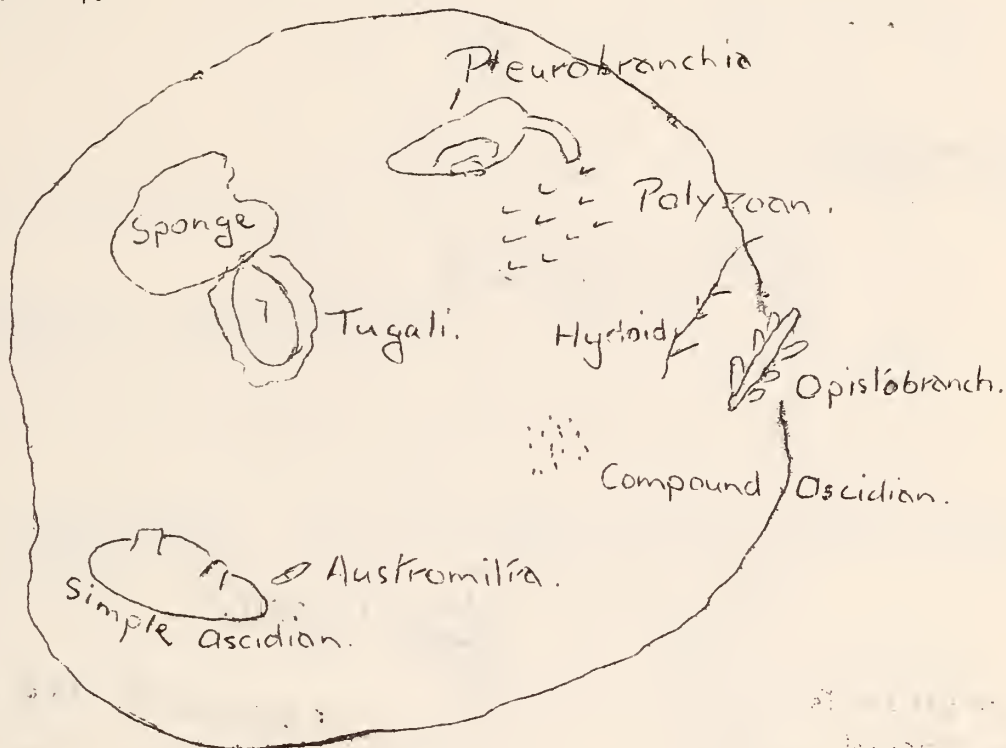 Pleurobranchia
Polyzoan.
Sponge
Tugali.
Hydoid
Opistobranch.
Compound Oscidian.
Austromitra.
Simple ascidian.